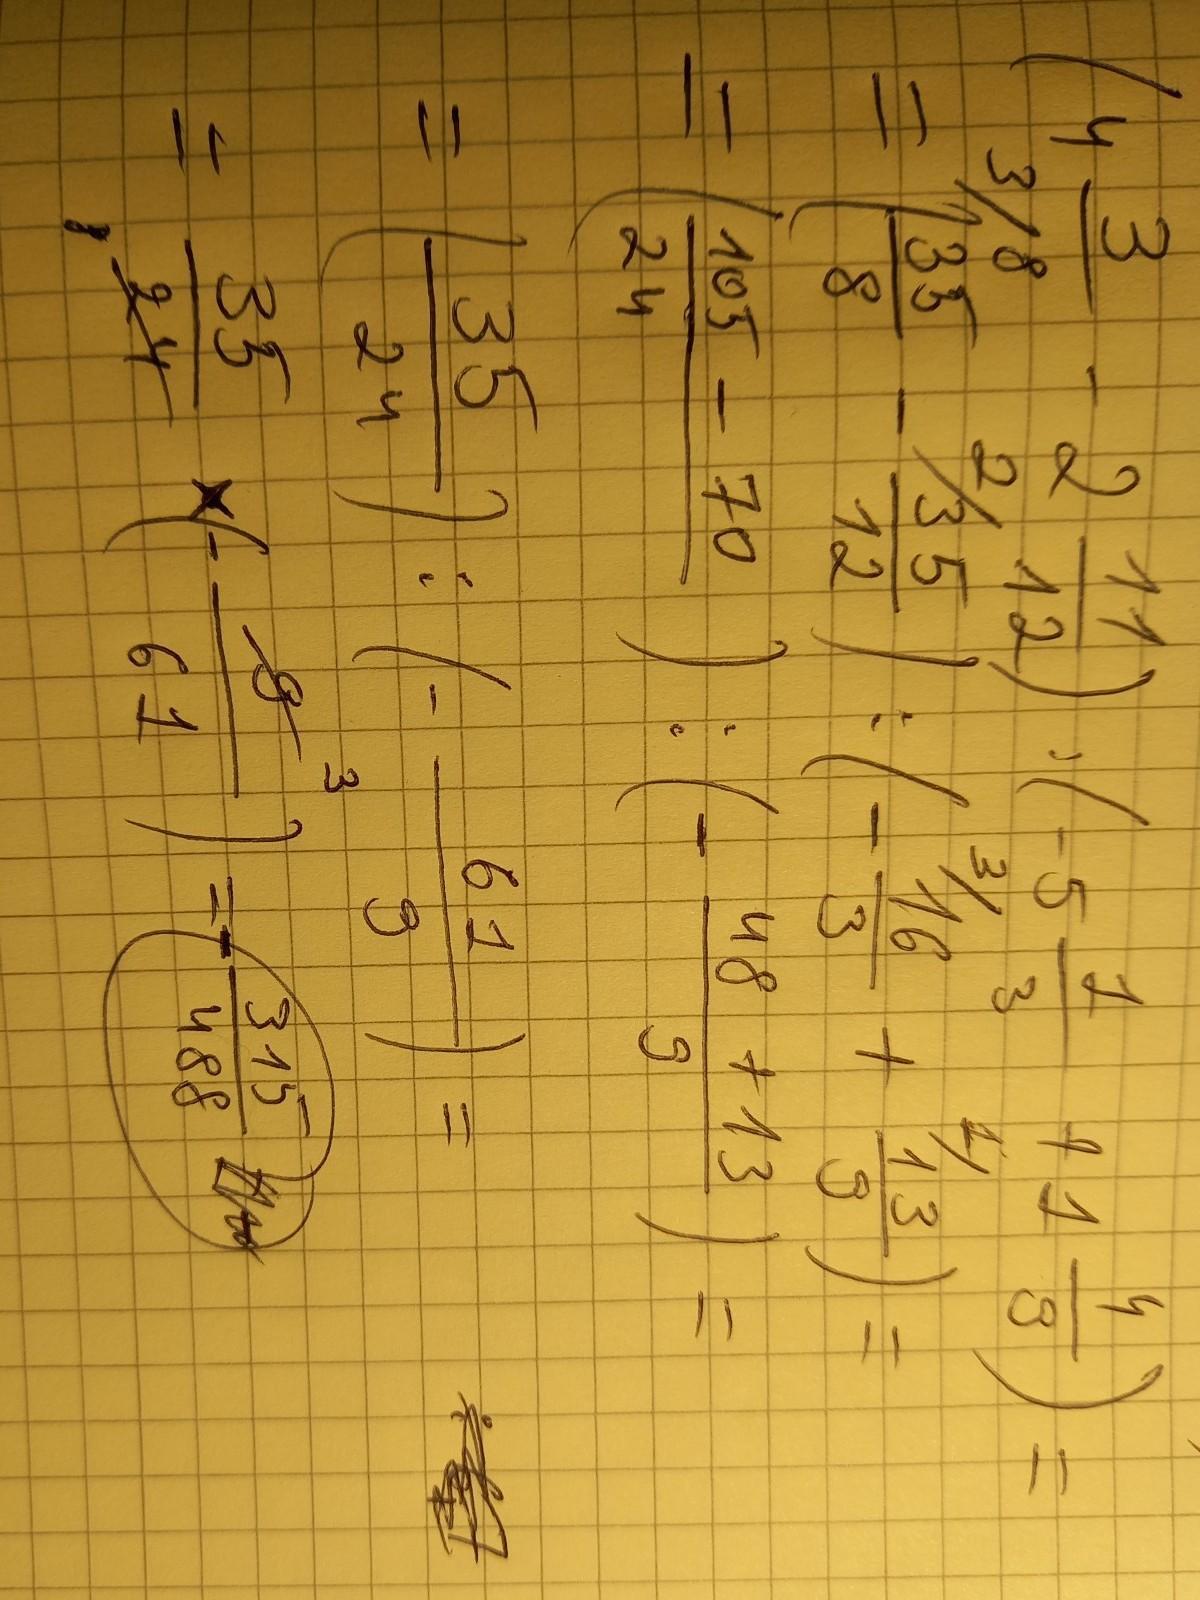 (4 3/8 - 2 11/12) : (-5 1/3 + 1 4/9) =
= (3/ 35/8 - 2/ 35/12) : (- 3/ 16/3 + 1/ 13/9) =
= ((105 - 70)/24) : (- (48 + 13)/9) =
= (35/24) : (- 61/9) =
= 35/24 8 x (- 9/61 3) = - 315/488